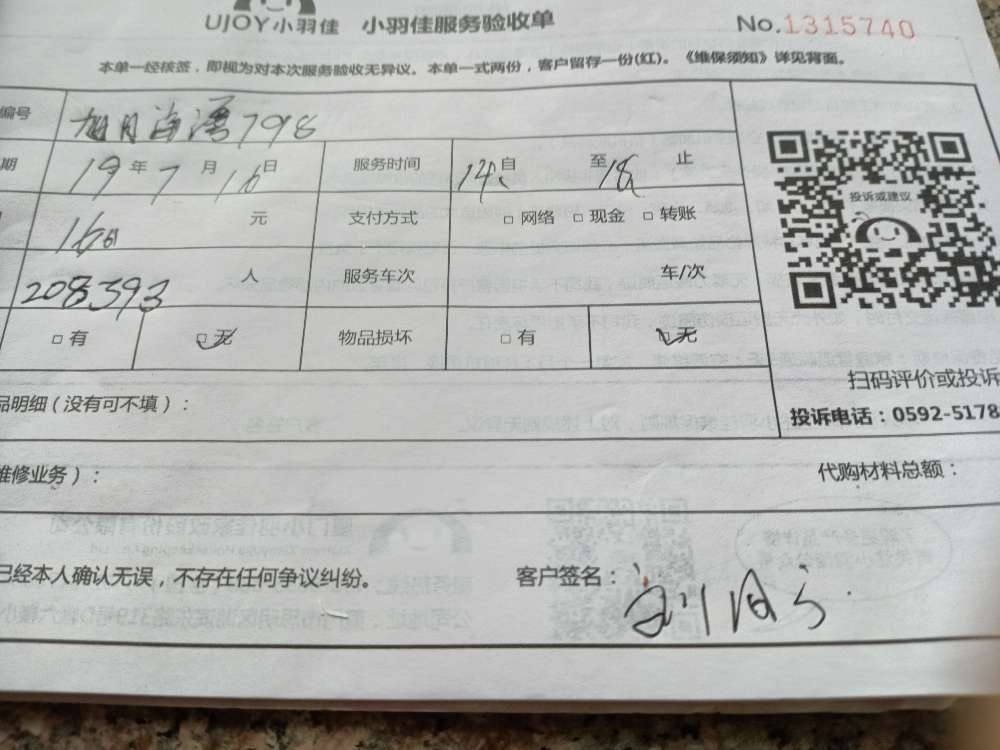 UJOY小羽佳 小羽佳服务验收单 No.1315740
本单一经核签，即视为对本次服务验收无异议。本单一式两份，客户留存一份(红)。《维保须知》详见背面。
编号 旭日海湾798
期 19年7月16日 服务时间 14自 至18 止
160 元 支付方式 □网络 □现金 □转账
208393 人 服务车次 车/次
□有 □无 物品损坏 □有 □无
投诉或建议
扫码评价或投诉
品明细(没有可不填)：
投诉电话：0592-5178
维修业务)： 代购材料总额：
已经本人确认无误，不存在任何争议纠纷。 客户签名：